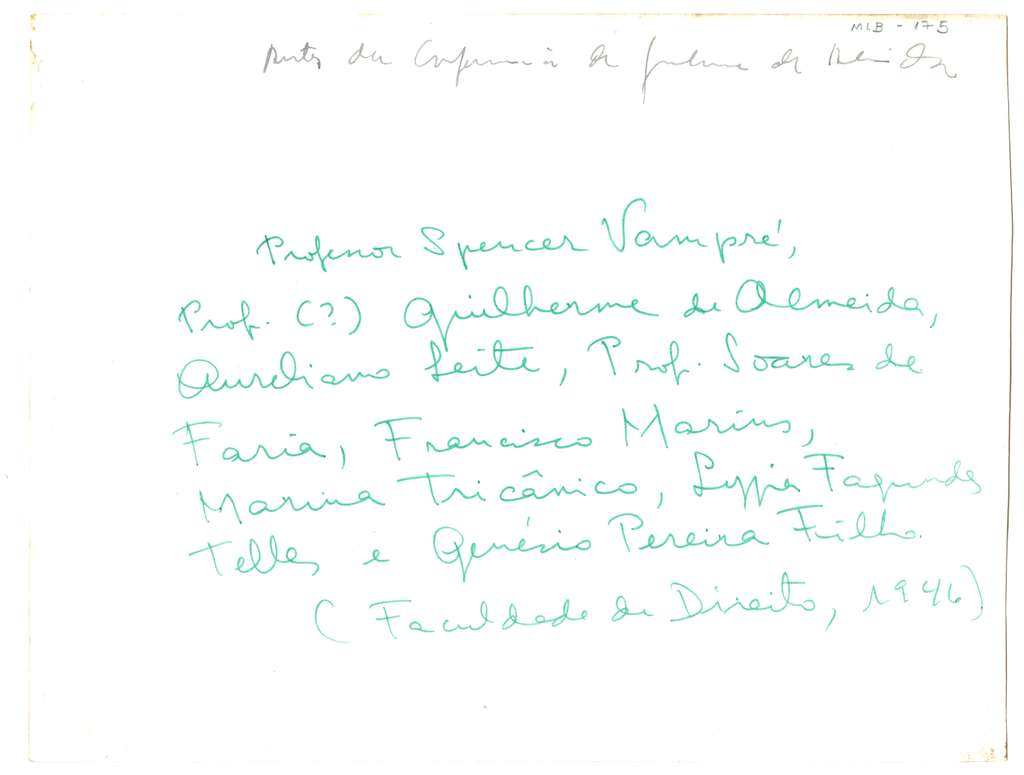 MLB - 175
Antes da Conferencia de Guilherme de Almeida
Professor Spencer Vampré,
Prof. (?) Guilherme de Almeida,
Aureliano Leite, Prof. Soares de
Faria, Francisco Marins,
Marina Tricânico, Lygia Fagundes
Telles e Genésio Pereira Filho.
(Faculdade de Direito, 1946)